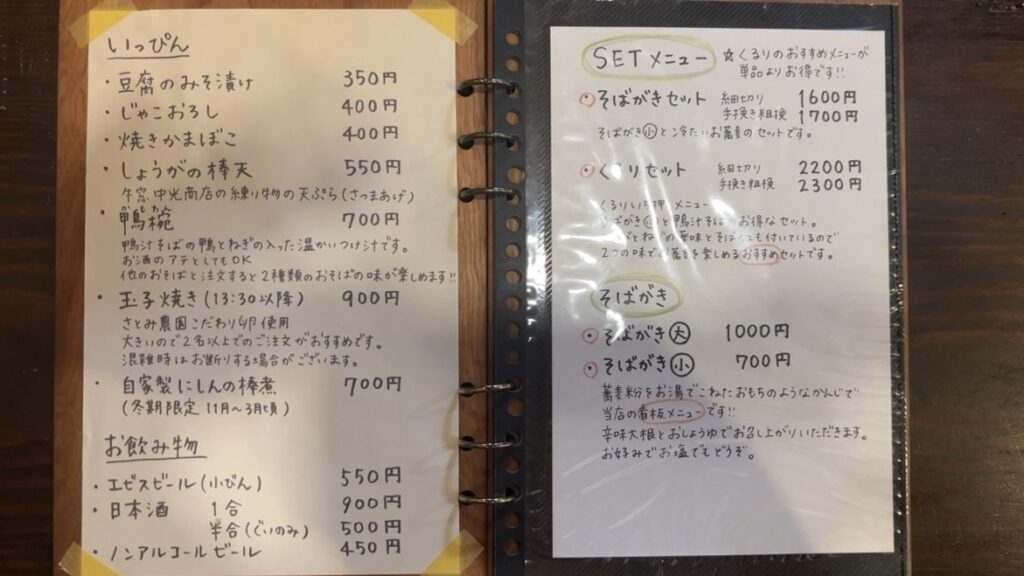 いっぴん
・豆腐のみそ漬け 350円
・じゃこおろし 400円
・焼きかまぼこ 400円
・しょうがの棒天 550円
牛窓 中光商店の練り物の天ぷら(さつまあげ)
・鴨椀 700円
鴨汁そばの鴨とねぎの入った温かいつけ汁です。
お酒のアテとしてもOK
他のおそばと注文すると2種類のおそばの味が楽しめます!!
・玉子焼き(13:30以降) 900円
さとみ農園こだわり卵使用
大きいので2名以上でのご注文がおすすめです。
混雑時はお断りする場合がございます。
・自家製にしんの棒煮 700円
(冬期限定 11月〜3月頃)
お飲み物
・エビスビール(小びん) 550円
・日本酒 1合 900円
半合(ぐいのみ) 500円
・ノンアルコールビール 450円
SETメニュー ☆くるりのおすすめメニューが
単品よりお得です!!
・そばがきセット 細切り 1600円
手挽き粗挽 1700円
そばがき小と冷たいお蕎麦のセットです。
・くるりセット 細切り 2200円
手挽き粗挽 2300円
くるりいち押メニュー
そばがき小と鴨汁そばのお得なセット。
とねぎの薬味とそば も付いているので
2つの味でお蕎麦を楽しめるおすすめセットです。
そばがき
・そばがき 大 1000円
・そばがき 小 700円
蕎麦粉をお湯でこねたおもちのようなかんじで
当店の看板メニューです!!
辛味大根とおしょうゆでお召し上がりいただきます。
お好みでお塩でもどうぞ。